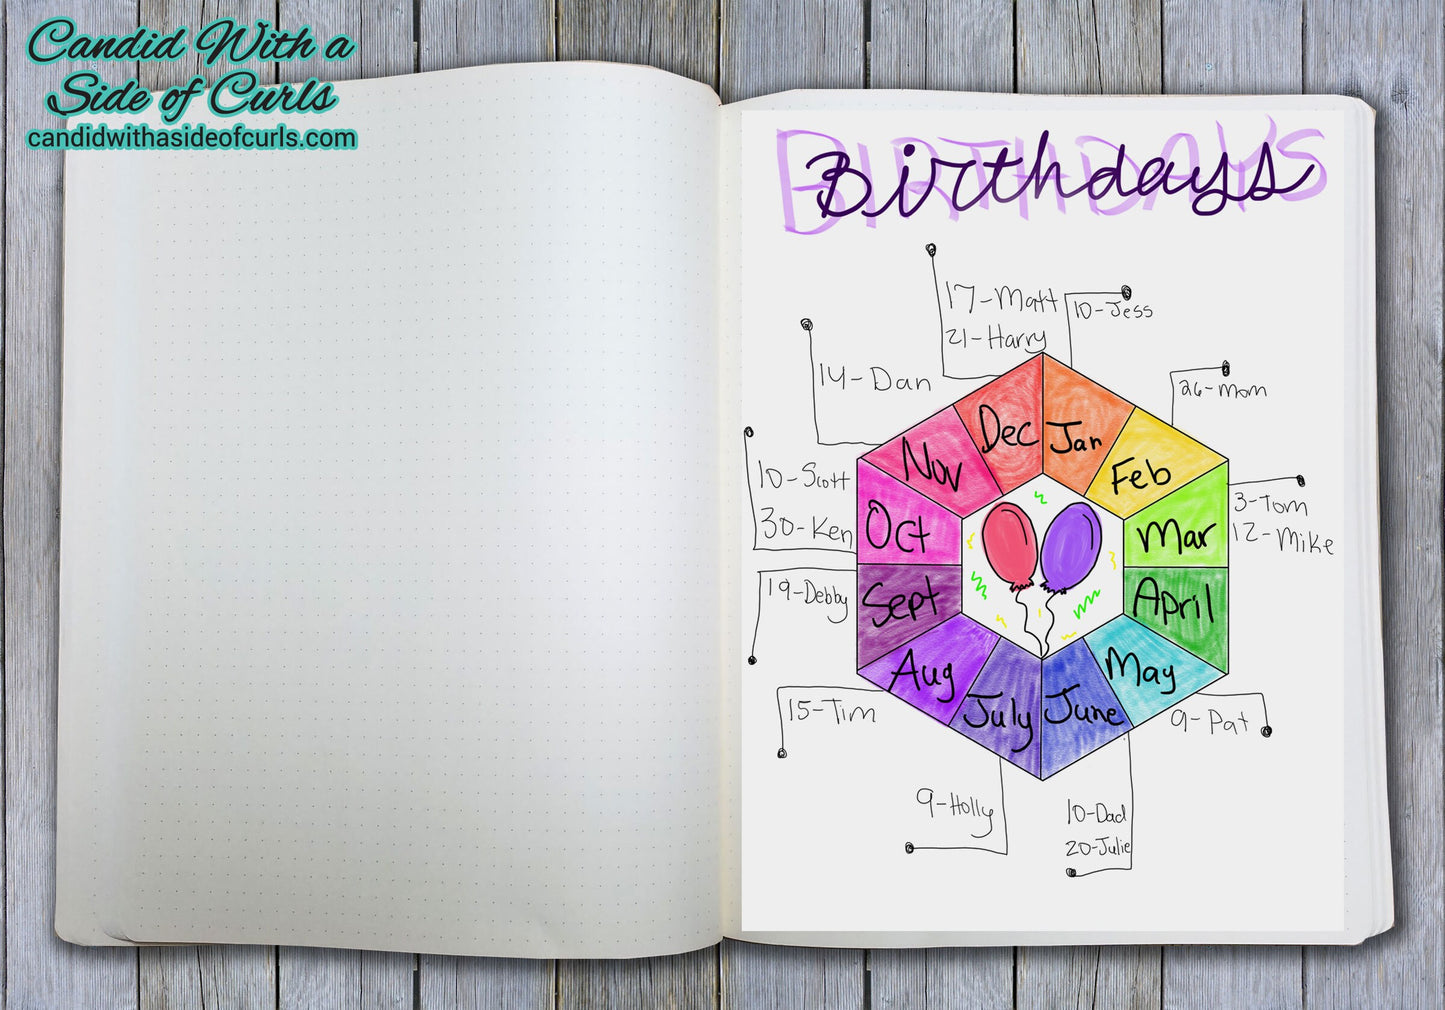 Candid With a
Side of Curls
candidwithasideofcurls.com
BIRTHDAYS
Birthdays
17-Matt
21-Harry
10-Jess
14-Dan
26-Mom
10-Scott
30-Ken
3-Tom
12-Mike
19-Debby
15-Tim
9-Pat
9-Holly
10-Dad
20-Julie
Dec
Jan
Nov
Feb
Oct
Mar
Sept
April
Aug
May
July
June